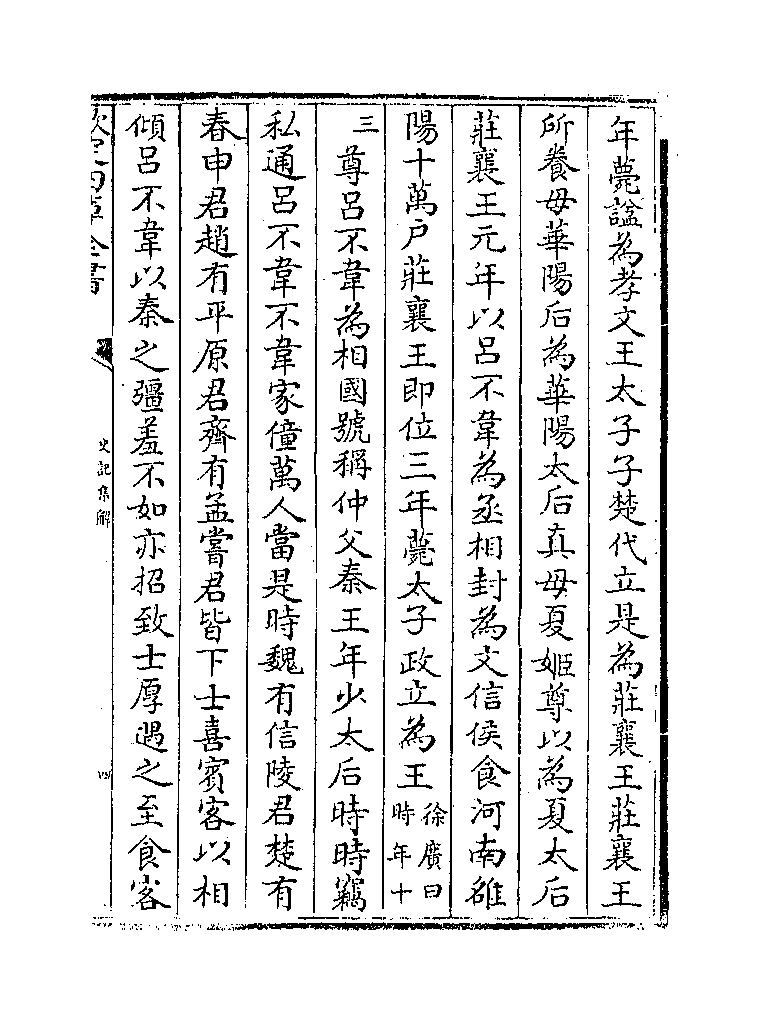 年薨諡為孝文王太子子楚代立是為莊襄王莊襄王
所養母華陽后為華陽太后真母夏姬尊以為夏太后
莊襄王元年以呂不韋為丞相封為文信侯食河南雒
陽十萬户莊襄王即位三年薨太子政立為王徐廣曰時年十
三尊呂不韋為相國號稱仲父秦王年少太后時時竊
私通呂不韋不韋家僮萬人當是時魏有信陵君楚有
春申君趙有平原君齊有孟嘗君皆下士喜賓客以相
傾呂不韋以秦之彊羞不如亦招致士厚遇之至食客
欽定四庫全書
史記集解